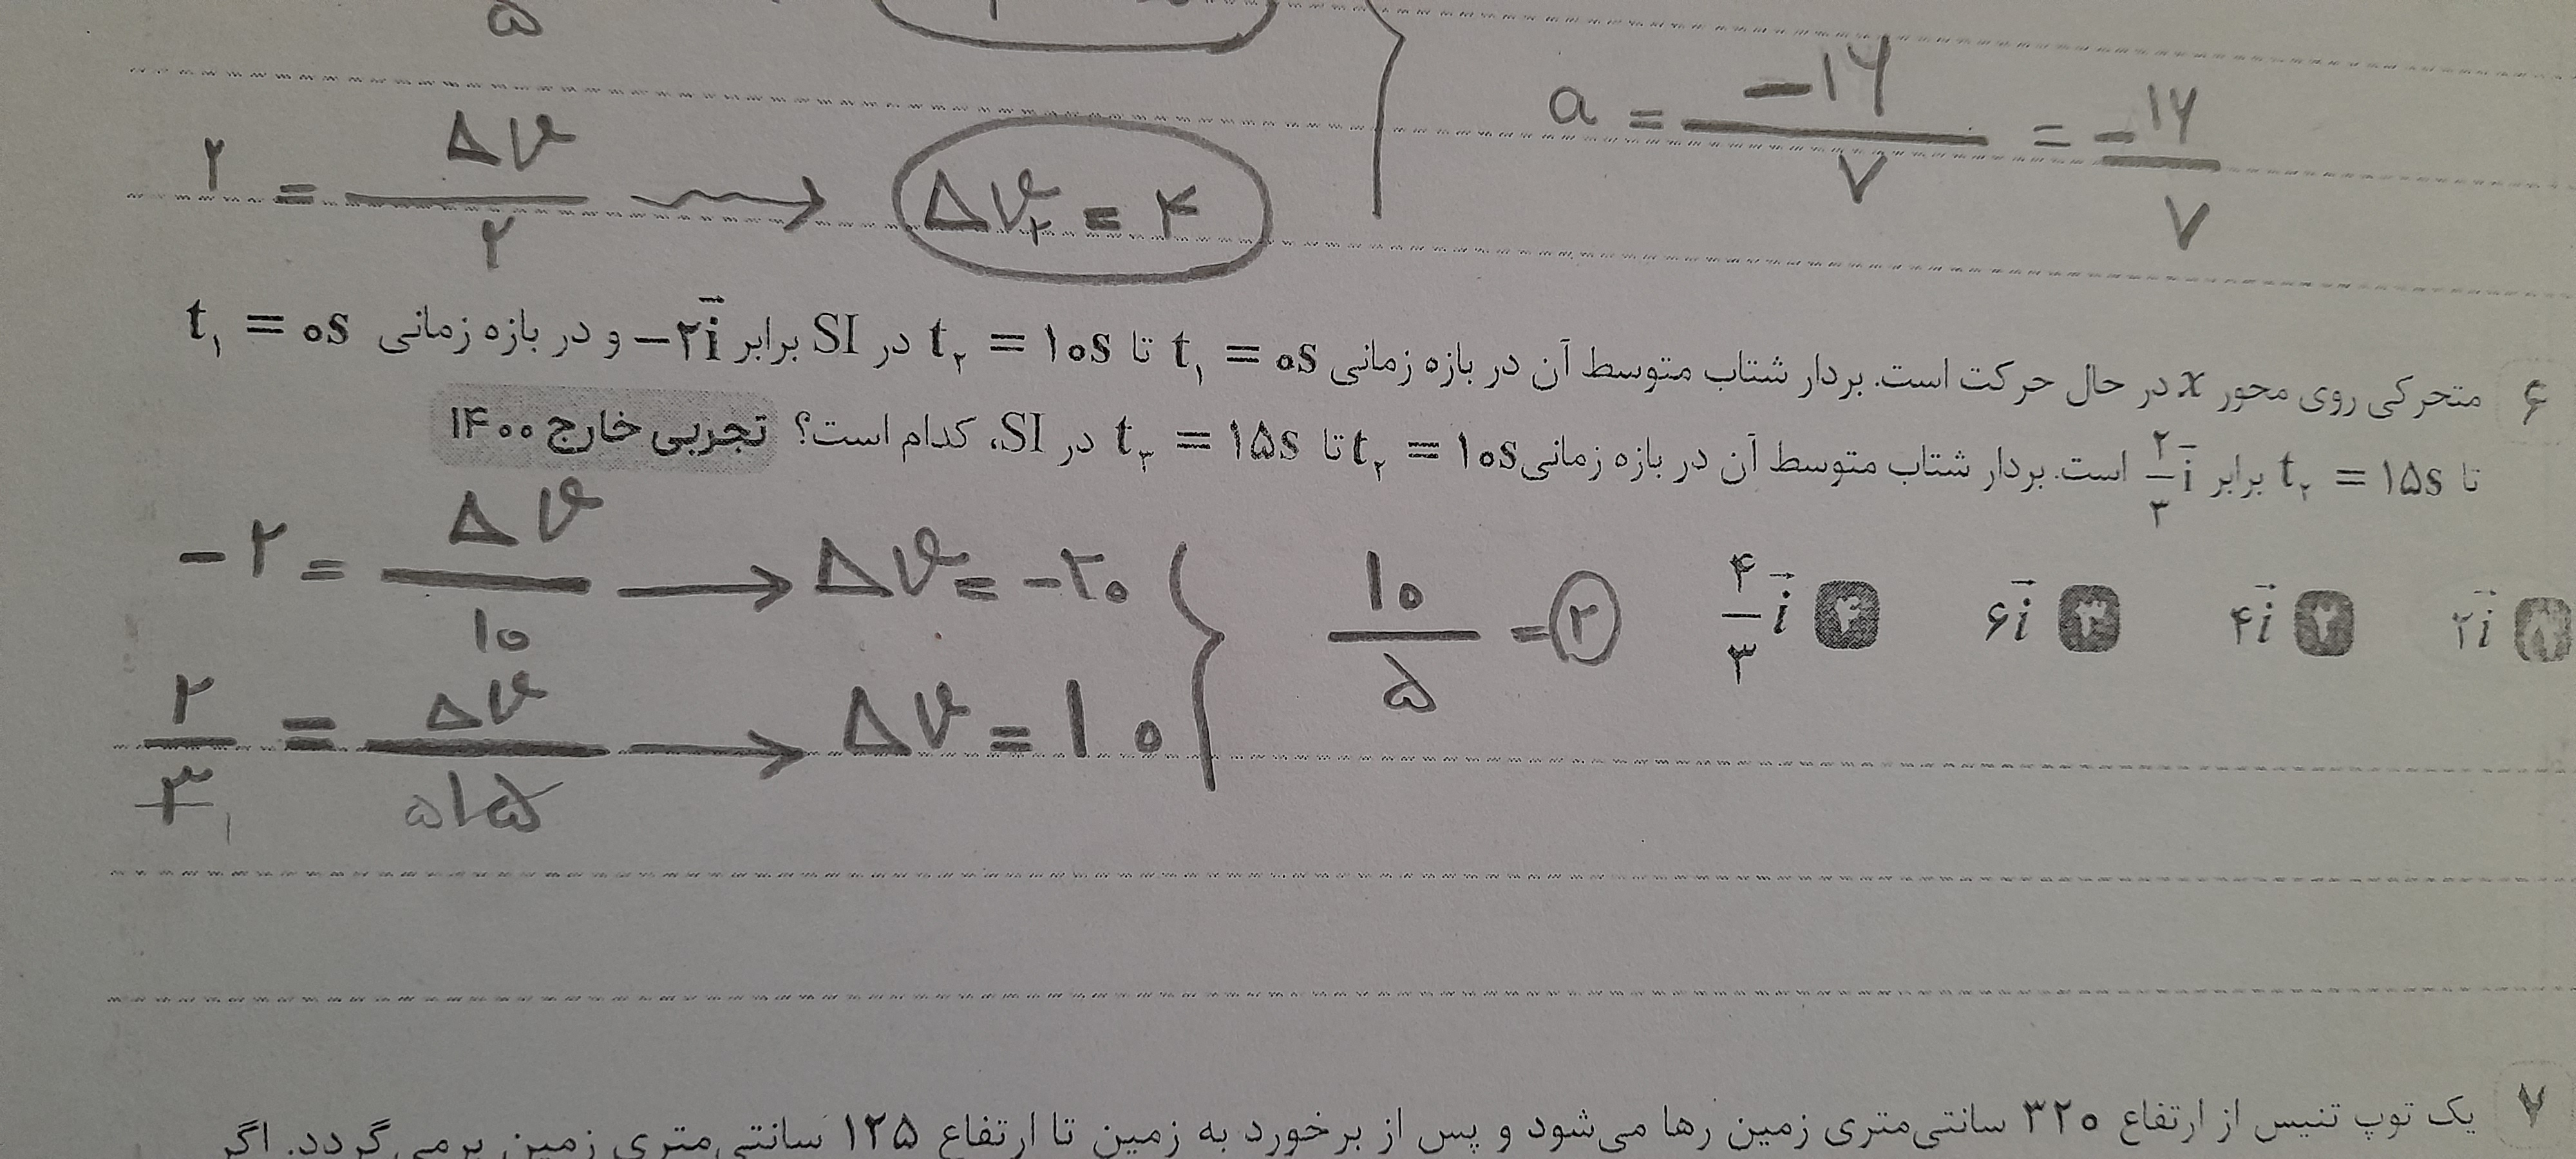 ۵
a = −۱۶ / ۷ = −۱۶ / ۷
۲ = Δv / ۲ → Δv₂ = ۴
۶ متحرکی روی محور x در حال حرکت است. بردار شتاب متوسط آن در بازه زمانی t₁ = ۰s تا t₂ = ۱۰s در SI برابر −۲i⃗ و در بازه زمانی t₁ = ۰s
تا t₂ = ۱۵s برابر ۲/۳ i⃗ است. بردار شتاب متوسط آن در بازه زمانی t₂ = ۱۰s تا t₃ = ۱۵s در SI، کدام است؟ تجربی خارج ۱۴۰۰
۲i⃗ ۲ ۴i⃗ ۳ ۶i⃗ ۴ ۴/۳ i⃗
−۲ = Δv / ۱۰ → Δv = −۲۰
۱۰ / ۵ = ۲
۲ / ۳ ۱ = Δv / ۱۵ ۵ → Δv = ۱۰
۷ یک توپ تنیس از ارتفاع ۳۲۰ سانتی‌متری زمین رها می‌شود و پس از برخورد به زمین تا ارتفاع ۱۲۵ سانتی‌متری زمین برمی‌گردد. اگر